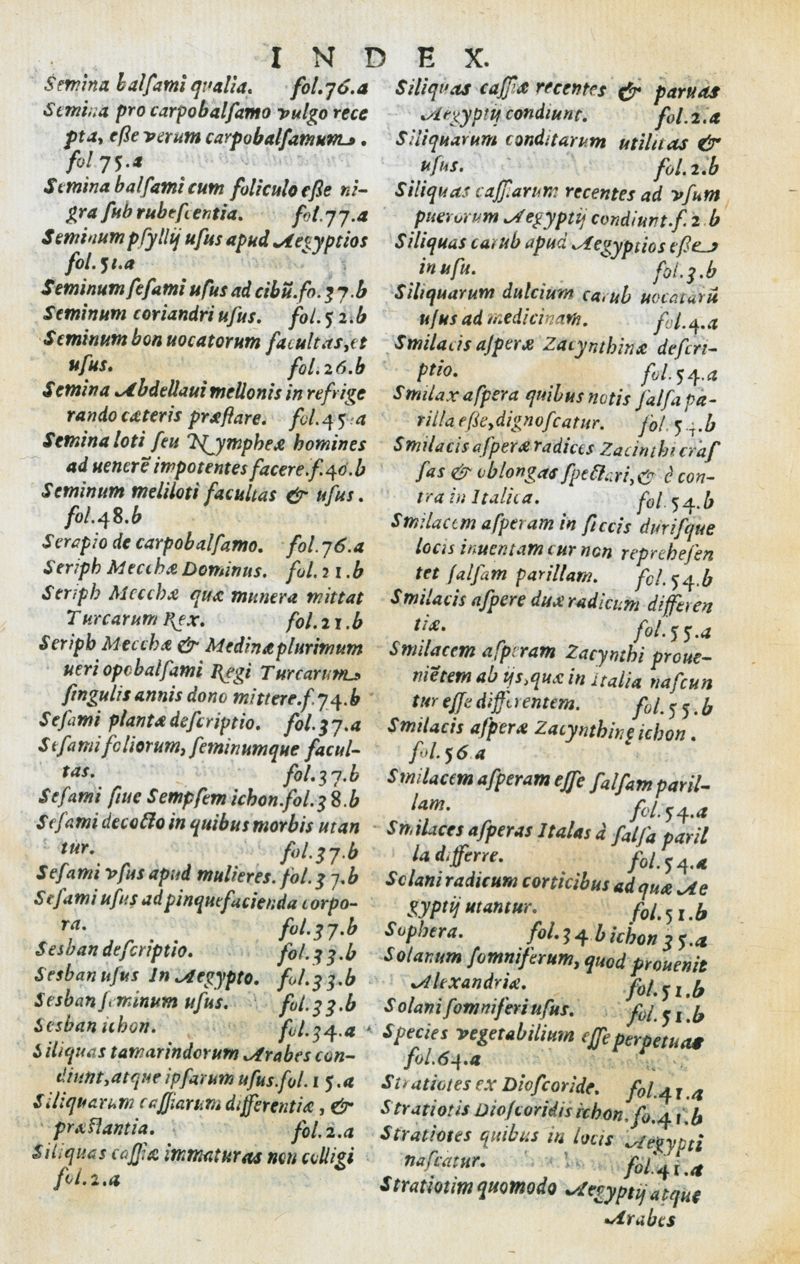 INDEX.
Semina balſami qualia. fol.76.a
Semina pro carpobalſamo vulgo rece
pta, eſſe verum carpobalſamum.
fol 75.a
Semina balſami cum foliculo eſſe ni-
gra ſub rubeſcentia. fol.77.a
Seminum pſyllij uſus apud Aegyptios
fol.51.a
Seminum ſeſami uſus ad cibũ.fo.37.b
Seminum coriandri uſus. fol.52.b
Seminum bon uocatorum facultas,et
uſus. fol.26.b
Semina Abdellaui mellonis in refrige
rando cæteris præſtare. fol.45.a
Semina loti ſeu Nympheæ homines
ad uenerẽ impotentes facere.f.40.b
Seminum meliloti facultas & uſus.
fol.48.b
Serapio de carpobalſamo. fol.76.a
Seriph Mecchæ Dominus. fol.21.b
Seriph Mecchæ quæ munera mittat
Turcarum Rex. fol.21.b
Seriph Mecchæ & Medinæ plurimum
ueri opobalſami Regi Turcarum
ſingulis annis dono mittere.f.74.b
Seſami plantæ deſcriptio. fol.37.a
Seſami foliorum, ſeminumque facul-
tas. fol.37.b
Seſami ſiue Sempſem ichon.fol.38.b
Seſami decocto in quibus morbis utan
tur. fol.37.b
Seſami vſus apud mulieres. fol.37.b
Seſami uſus ad pinquefacienda corpo-
ra. fol.37.b
Sesban deſcriptio. fol.33.b
Sesban uſus In Aegypto. fol.33.b
Sesban ſeminum uſus. fol.33.b
Sesban ichon. fol.34.a
Siliquas tamarindorum Arabes con-
diunt,atque ipſarum uſus.fol.15.a
Siliquarum caſſiarum differentiæ, &
præſtantia. fol.2.a
Siliquas caſſiæ immaturas non colligi
fol.2.a
Siliquas caſſiæ recentes & paruas
Aegyptij condiunt. fol.2.a
Siliquarum conditarum utilitas &
uſus. fol.2.b
Siliquas caſſiarum recentes ad vſum
puerorum Aegyptij condiunt.f.2 b
Siliquas carub apud Aegyptios eſſe
in uſu. fol.3.b
Siliquarum dulcium carub uocatarũ
uſus ad medicinam. fol.4.a
Smilacis aſperæ Zacynthinæ deſcri-
ptio. fol.54.a
Smilax aſpera quibus notis ſalſa pa-
rilla eſſe,dignoſcatur. fol.54.b
Smilacis aſperæ radices Zacinthi craſ
ſas & oblongas ſpectari,& è con-
tra in Italica. fol.54.b
Smilacem aſperam in ſiccis duriſque
locis inuentam cur non reprehẽſen
tet ſalſam parillam. fol.54.b
Smilacis aſpere duæ radicum differen
tiæ. fol.55.a
Smilacem aſperam Zacynthi proue-
niẽtem ab ijs,quæ in Italia naſcun
tur eſſe differentem. fol.55.b
Smilacis aſperæ Zacynthinę ichon.
fol.56 a
Smilacem aſperam eſſe ſalſam paril-
lam. fol.54.a
Smilaces aſperas Italas à ſalſa paril
la differre. fol.54.a
Solani radicum corticibus ad quæ Ae
gyptij utantur. fol.51.b
Sophera. fol.34 b ichon 35.a
Solanum ſomniferum, quod prouenit
Alexandriæ. fol.51.b
Solani ſomniferi uſus. fol.51.b
Species vegetabilium eſſe perpetuas
fol.64.a
Stratiotes ex Dioſcoride. fol.41.a
Stratiotis Dioſcoridis ichon.fo.41.b
Stratiotes quibus in locis Aegypti
naſcatur. fol.41.a
Stratiotim quomodo Aegyptij atque
Arabes